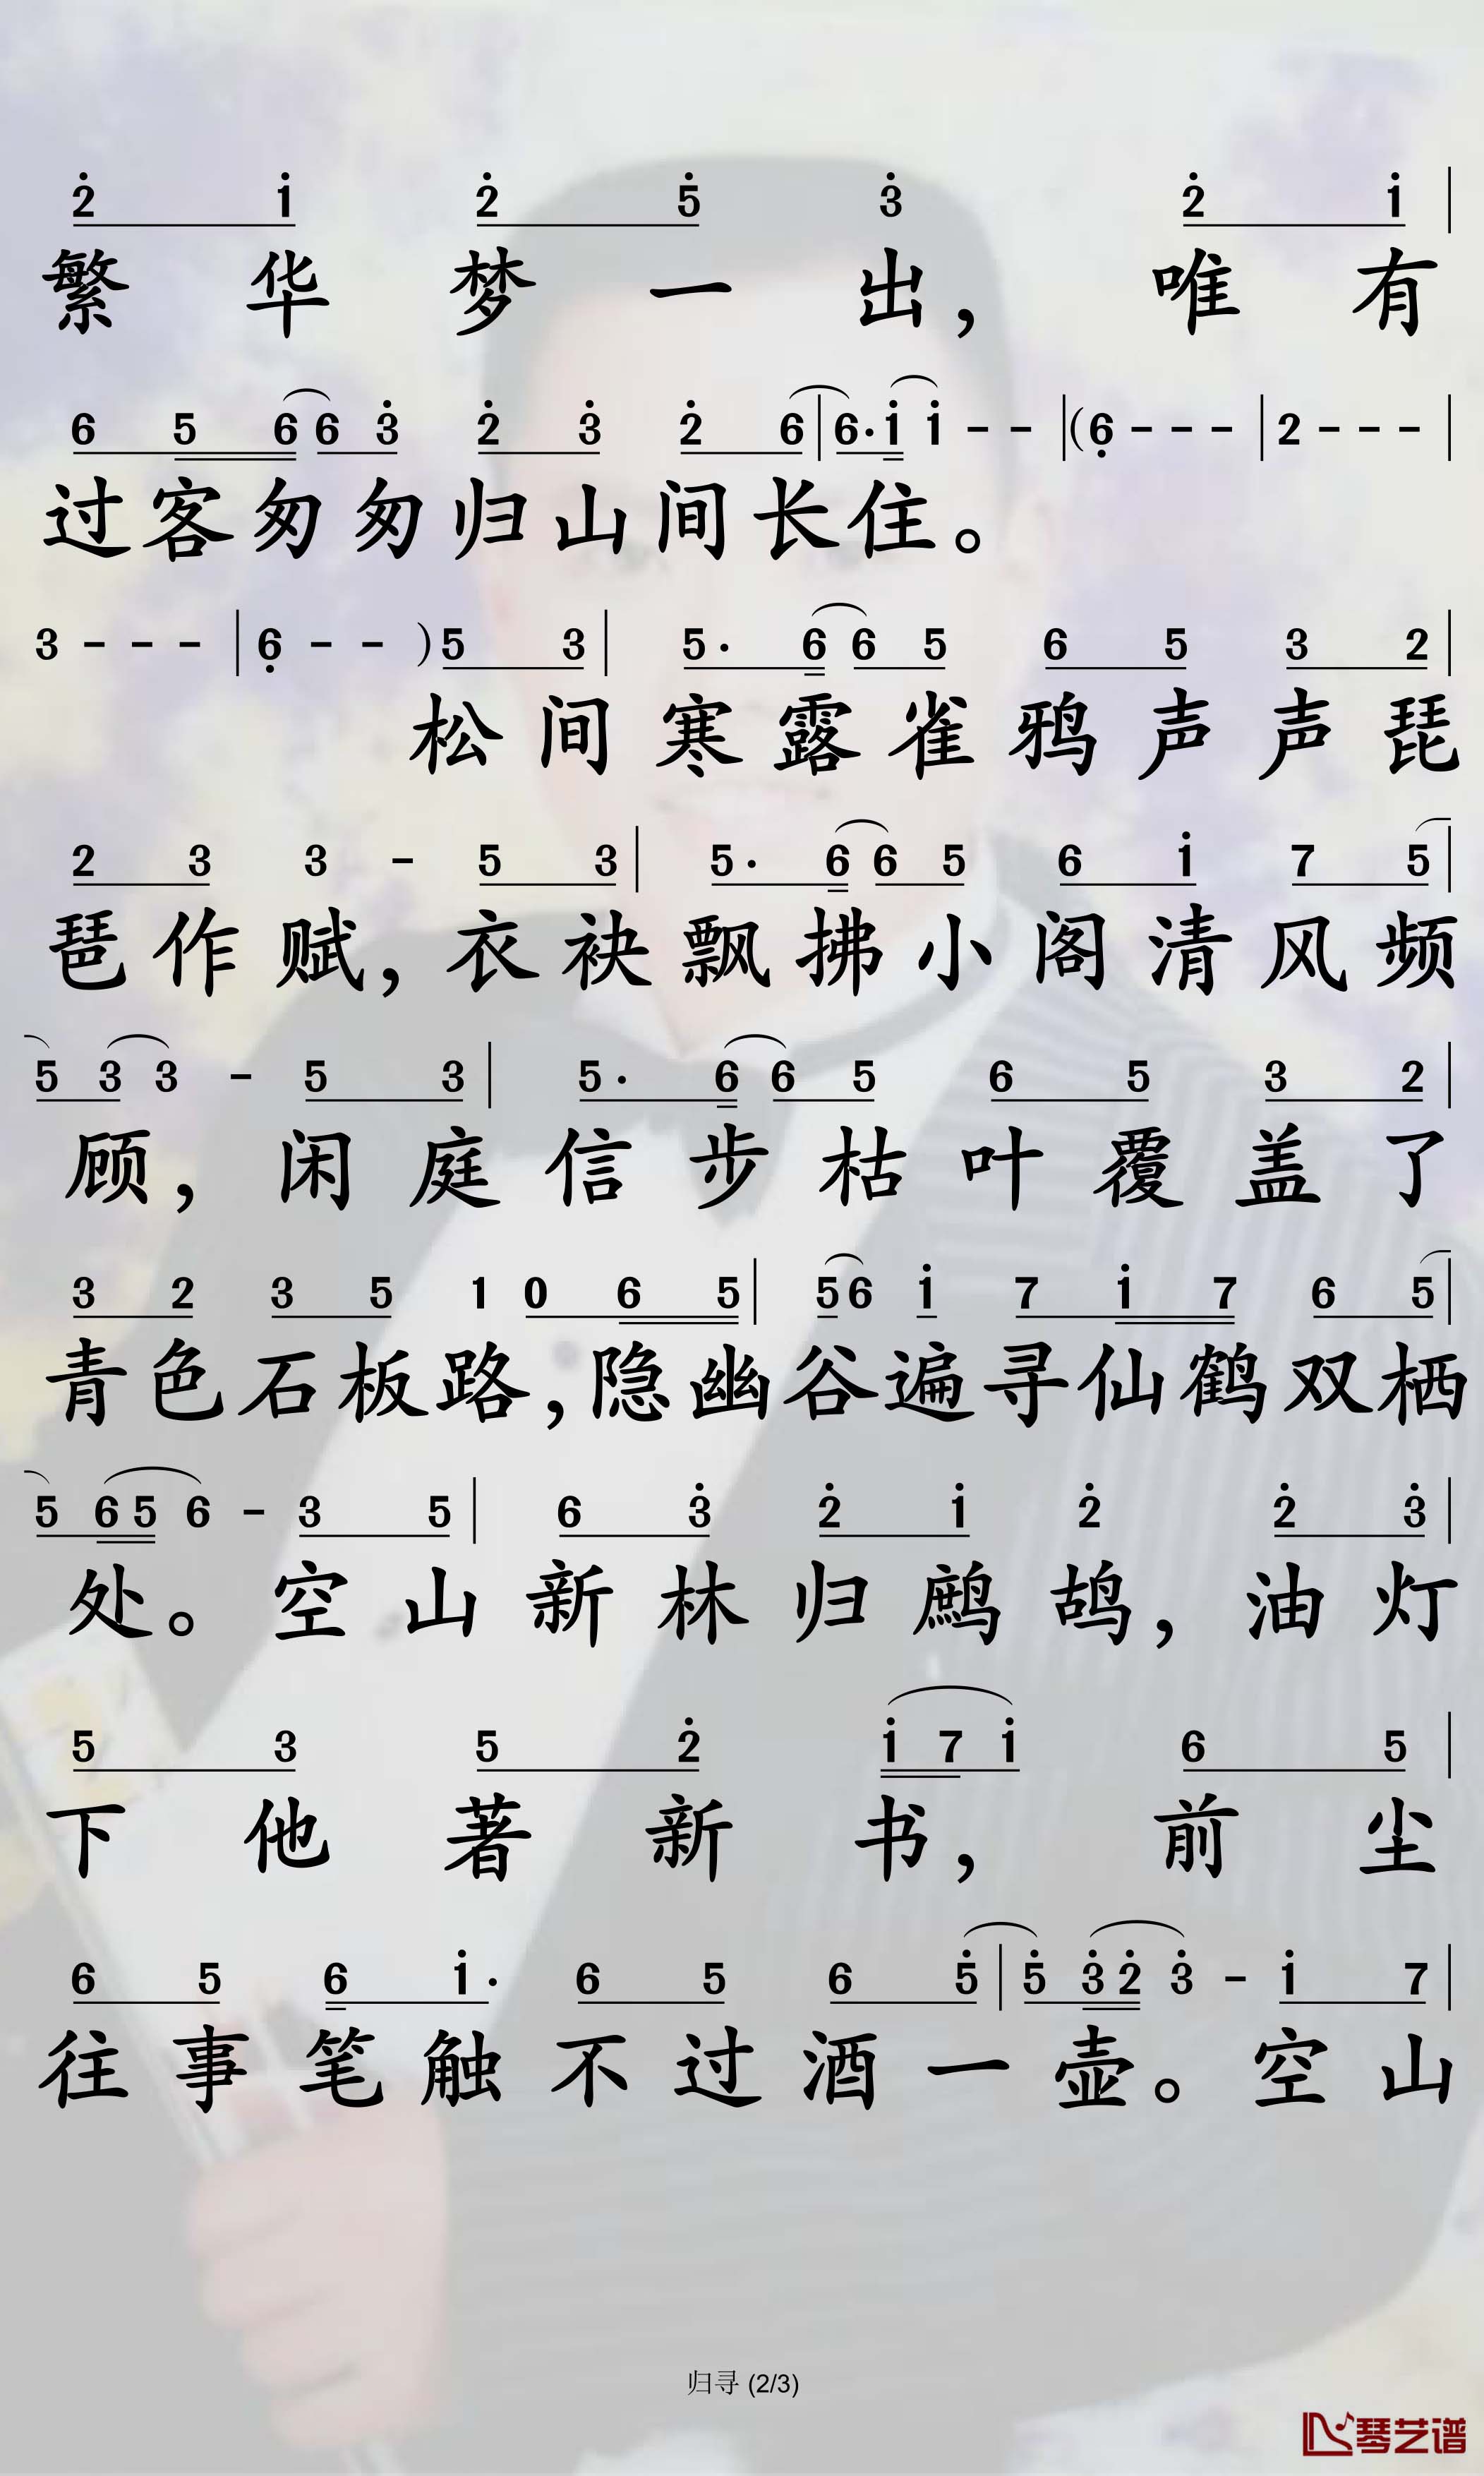 2̇ 1̇ 2̇ 5̇ 3̇ 2̇ 1̇ |
繁华梦一出，唯有
6 5 6 6 3̇ 2̇ 3̇ 2̇ 6 | 6· 1̇ 1̇ - - | (6̣ - - - | 2 - - - |
过客匆匆归山间长住。
3 - - - | 6̣ - - ) 5 3 | 5· 6 6 5 6 5 3 2 |
松间寒露雀鸦声声琵
2 3 3 - 5 3 | 5· 6 6 5 6 1̇ 7 5 |
琶作赋，衣袂飘拂小阁清风频
5 3 3 - 5 3 | 5· 6 6 5 6 5 3 2 |
顾，闲庭信步枯叶覆盖了
3 2 3 5 1 0 6 5 | 5 6 1̇ 7 1̇ 7 6 5 |
青色石板路，隐幽谷遍寻仙鹤双栖
5 6 5 6 - 3 5 | 6 3̇ 2̇ 1̇ 2̇ 2̇ 3̇ |
处。空山新林归鹧鸪，油灯
5 3 5 2̇ 1̇ 7 1̇ 6 5 |
下他著新书，前尘
6 5 6 1̇· 6 5 6 5̇ | 5̇ 3̇ 2̇ 3̇ - 1̇ 7 |
往事笔触不过酒一壶。空山
归寻 (2/3)
琴艺谱